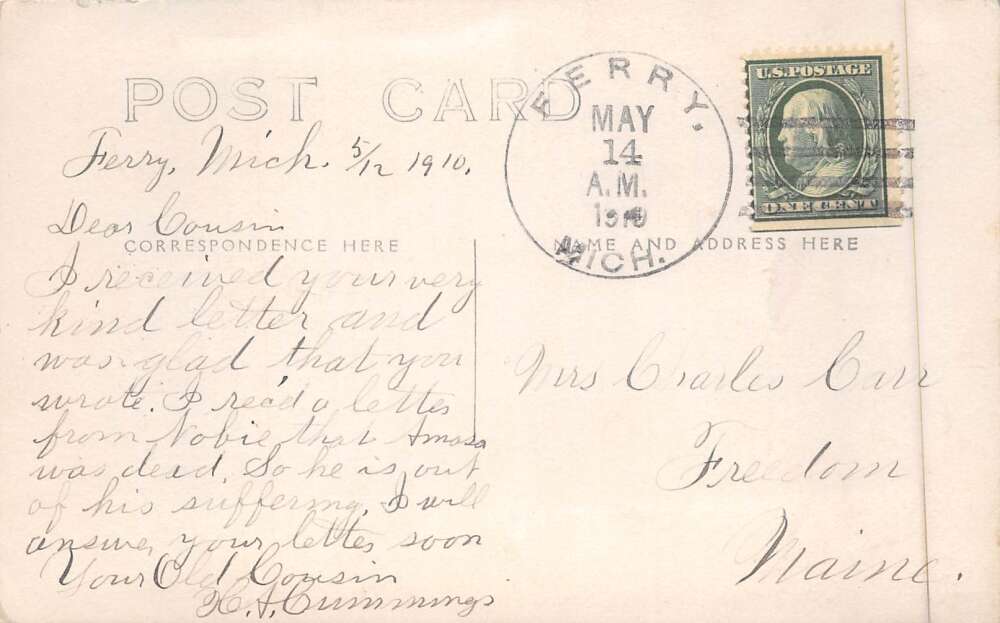 POST CARD
Ferry, Mich. 5/12 1910.
Dear Cousin
CORRESPONDENCE HERE
I received your very
kind letter and
was glad that you
wrote. I read a letter
from Nobie that Amasa
was dead. So he is out
of his suffering. I will
answer your letter soon
Your Old Cousin
H. S. Cummings
FERRY,
MAY
14
A.M.
1910
MICH.
U.S. POSTAGE
ONE CENT
NAME AND ADDRESS HERE
Mrs Charles Carr
Freedom
Maine.